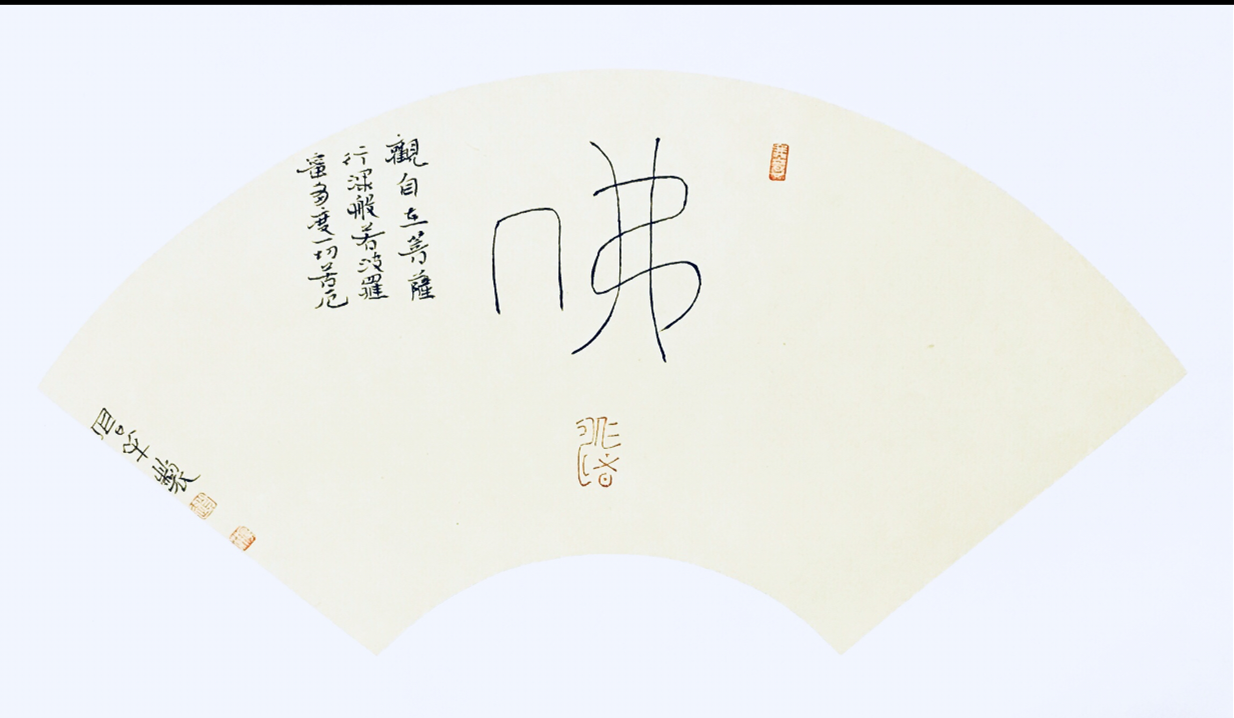 佛
觀自在菩薩
行深般若波羅
蜜多度一切苦厄